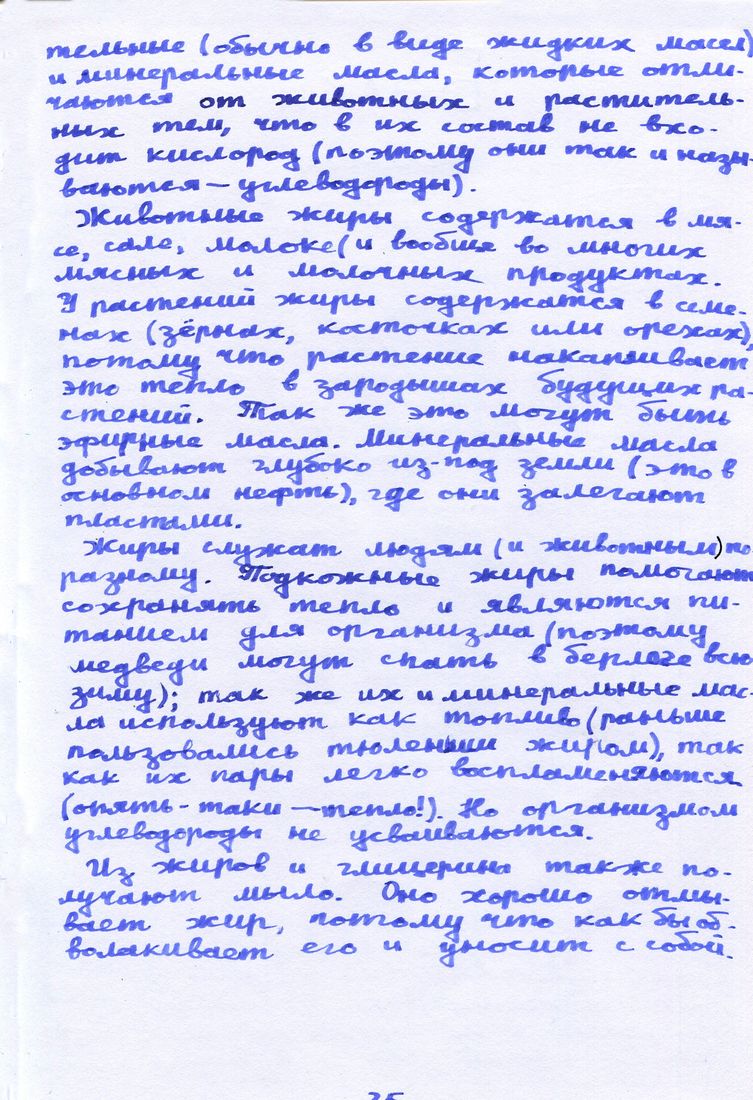 тельные (обычно в виде жидких масел)
и минеральные масла, которые отли-
чаются от животных и раститель-
ных тем, что в их состав не вхо-
дит кислород (поэтому они так и назы-
ваются — углеводороды).
Животные жиры содержатся в мя-
се, сале, молоке (и вообще во многих
мясных и молочных продуктах.
У растений жиры содержатся в семе-
нах (зёрнах, косточках или орехах),
потому что растение накапливает
это тепло в зародышах будущих ра-
стений. Так же это могут быть
эфирные масла. Минеральные масла
добывают глубоко из-под земли (это в
основном нефть), где они залегают
пластами.
Жиры служат людям (и животным) по
разному. Подкожные жиры помогают
сохранять тепло и являются пи-
танием для организма (поэтому
медведи могут спать в берлоге всю
зиму); так же их и минеральные мас-
ла используют как топливо (раньше
пользовались тюленьим жиром), так
как их пары легко воспламеняются
(опять-таки — тепло!). Но организмом
углеводороды не усваиваются.
Из жиров и глицерина также по-
лучают мыло. Оно хорошо отмы-
вает жир, потому что как бы об-
волакивает его и уносит с собой.